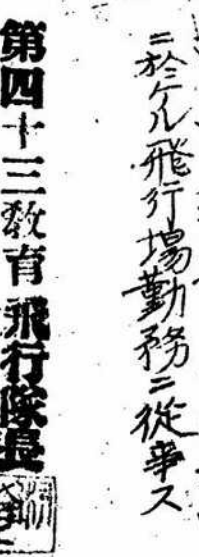 ニ於ケル飛行場勤務ニ從事ス
第四十三教育飛行隊長